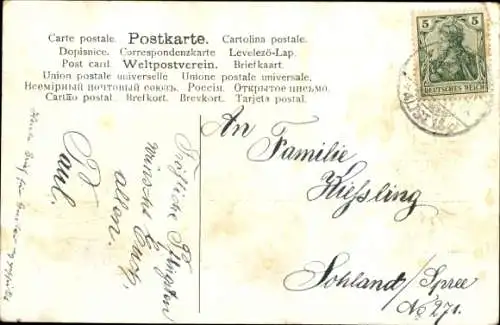 Carte postale. Postkarte. Cartolina postale.
Dopisnice. Correspondenzkarte Levelező-Lap.
Post card. Weltpostverein. Briefkaart.
Union postale universelle Unione postale universale.
Всемірный почтовый союзъ. Россія. Открытое письмо.
Cartão postal. Brefkort. Brevkort. Tarjeta postal.
5 5
DEUTSCHES REICH
An Familie
Kießling
Sohland/Spree
No 271.
Fröhliche Pfingsten
wünscht Euch
allen
Paul.